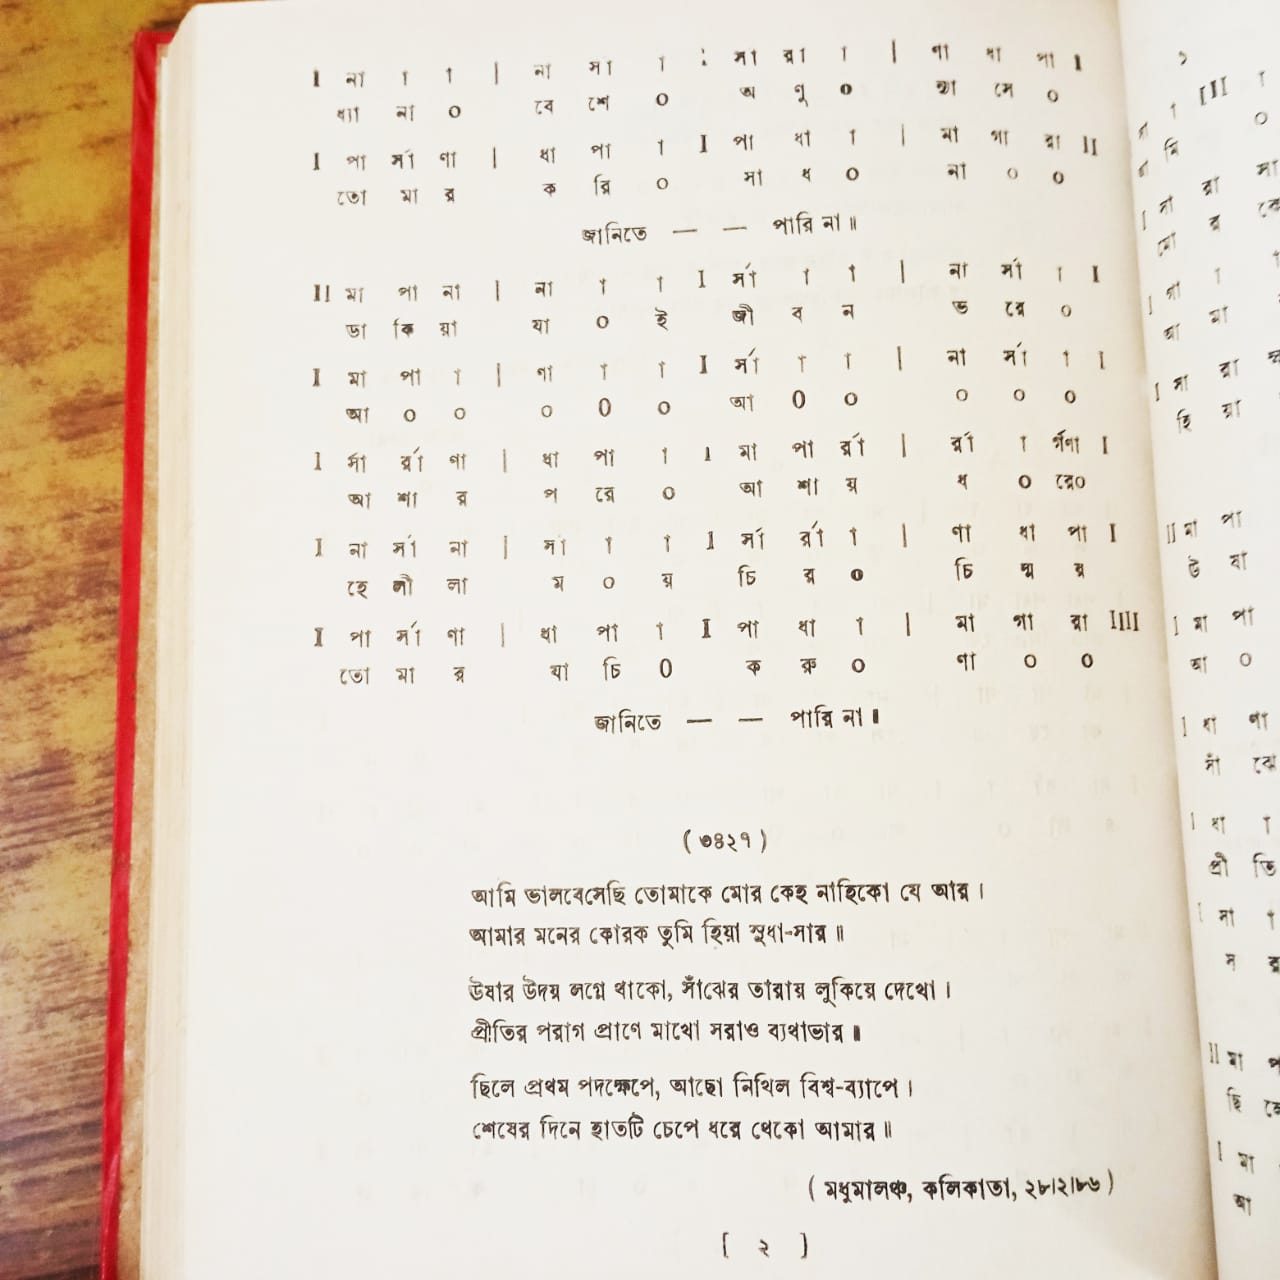 I না া া | না সা া : সা রা া | ণা ধা পা I
ধ্যা না ০ বে শে ০ অ ণু ০ ধ্যা সে ০
I পা র্সা ণা | ধা পা া I পা ধা া | মা গা রা II
তো মা র ক রি ০ সা ধ ০ না ০ ০
জানিতে — — পারি না॥
II মা পা না | না া া I র্সা া া | না র্সা া I
ডা কি য়া যা ০ ই জী ব ন ভ রে ০
I মা পা া | ণা া া I র্সা া া | না র্সা া I
আ ০ ০ ০ ০ ০ আ ০ ০ ০ ০ ০
I র্সা র্রা ণা | ধা পা া I মা পা র্রা | র্রা া র্গণা I
আ শা র প রে ০ আ শা য় ধ ০ রে০
I না র্সা না | সা া া I র্সা র্রা া | ণা ধা পা I
হে লী লা ম ০ য় চি র ০ চি ন্ম য়
I পা র্সা ণা | ধা পা া I পা ধা া | মা গা রা IIII
তো মা র যা চি ০ ক রু ০ ণা ০ ০
জানিতে — — পারি না॥
(৩৪২৭)
আমি ভালবেসেছি তোমাকে মোর কেহ নাহিকো যে আর।
আমার মনের কোরক তুমি হিয়া সুধা-সার॥
উষার উদয় লগ্নে থাকো, সাঁঝের তারায় লুকিয়ে দেখো।
প্রীতির পরাগ প্রাণে মাখো সরাও ব্যথাভার॥
ছিলে প্রথম পদক্ষেপে, আছো নিখিল বিশ্ব-ব্যাপে।
শেষের দিনে হাতটি চেপে ধরে থেকো আমার॥
(মধুমালঞ্চ, কলিকাতা, ২৮।২।৮৬)
[ ২ ]